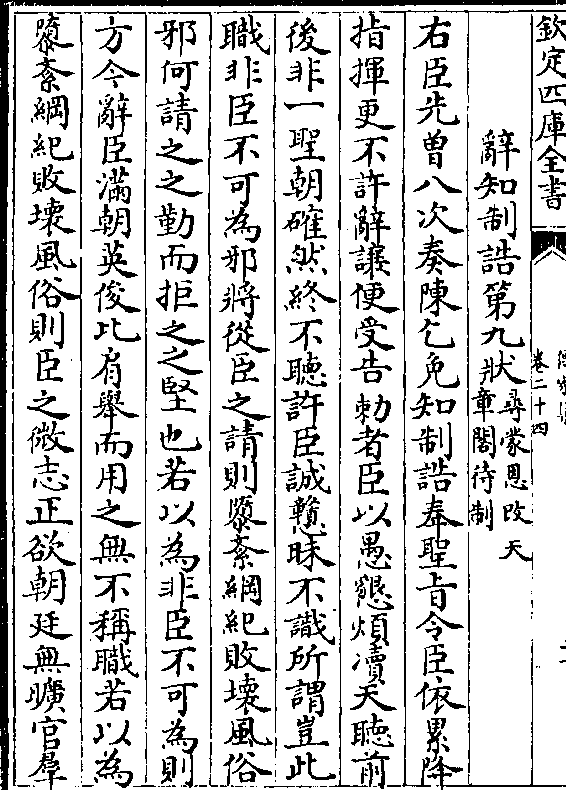 欽定四庫全書
卷二十四
辭知制誥第九狀尋蒙恩改天
章閣待制
右臣先曾八次奏陳乞免知制誥奉聖旨令臣依累降
指揮更不許辭讓便受告勅者臣以愚懇煩瀆天聽前
後非一聖朝確然終不聽許臣誠戇昧不識所謂豈此
職非臣不可為邪將從臣之請則隳紊綱紀敗壊風俗
邪何請之之勤而拒之之堅也若以為非臣不可為則
方今辭臣滿朝英俊比肩舉而用之無不稱職若以為
隳紊綱紀敗壊風俗則臣之微志正欲朝廷無曠官羣